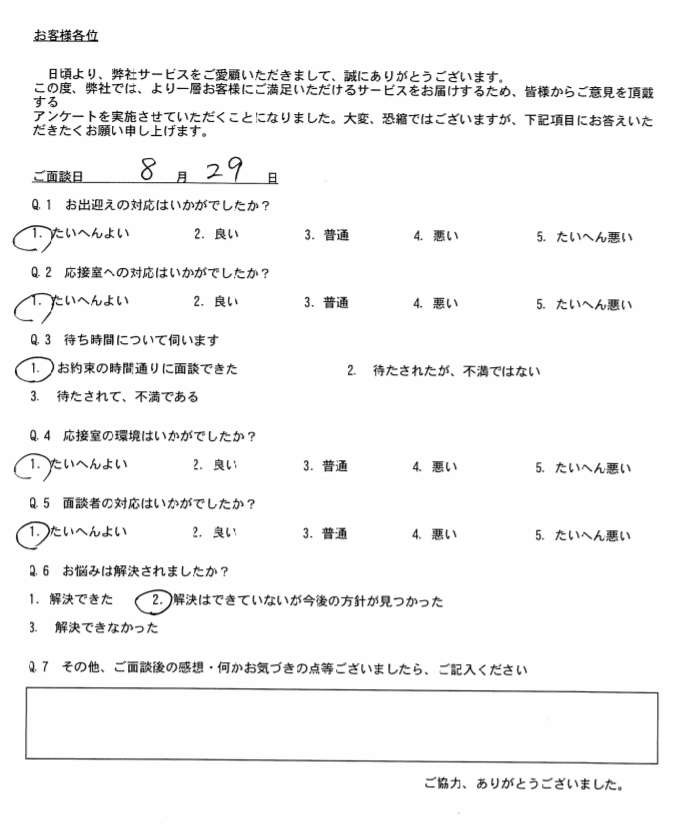 お客様各位
日頃より、弊社サービスをご愛顧いただきまして、誠にありがとうございます。
この度、弊社では、より一層お客様にご満足いただけるサービスをお届けするため、皆様からご意見を頂戴
する
アンケートを実施させていただくことになりました。大変、恐縮ではございますが、下記項目にお答えいた
だきたくお願い申し上げます。
ご面談日 8 月 29 日
Q.1 お出迎えの対応はいかがでしたか？
1. たいへんよい 2. 良い 3. 普通 4. 悪い 5. たいへん悪い
Q.2 応接室への対応はいかがでしたか？
1. たいへんよい 2. 良い 3. 普通 4. 悪い 5. たいへん悪い
Q.3 待ち時間について伺います
1. お約束の時間通りに面談できた 2. 待たされたが、不満ではない
3. 待たされて、不満である
Q.4 応接室の環境はいかがでしたか？
1. たいへんよい 2. 良い 3. 普通 4. 悪い 5. たいへん悪い
Q.5 面談者の対応はいかがでしたか？
1. たいへんよい 2. 良い 3. 普通 4. 悪い 5. たいへん悪い
Q.6 お悩みは解決されましたか？
1. 解決できた 2. 解決はできていないが今後の方針が見つかった
3. 解決できなかった
Q.7 その他、ご面談後の感想・何かお気づきの点等ございましたら、ご記入ください
ご協力、ありがとうございました。